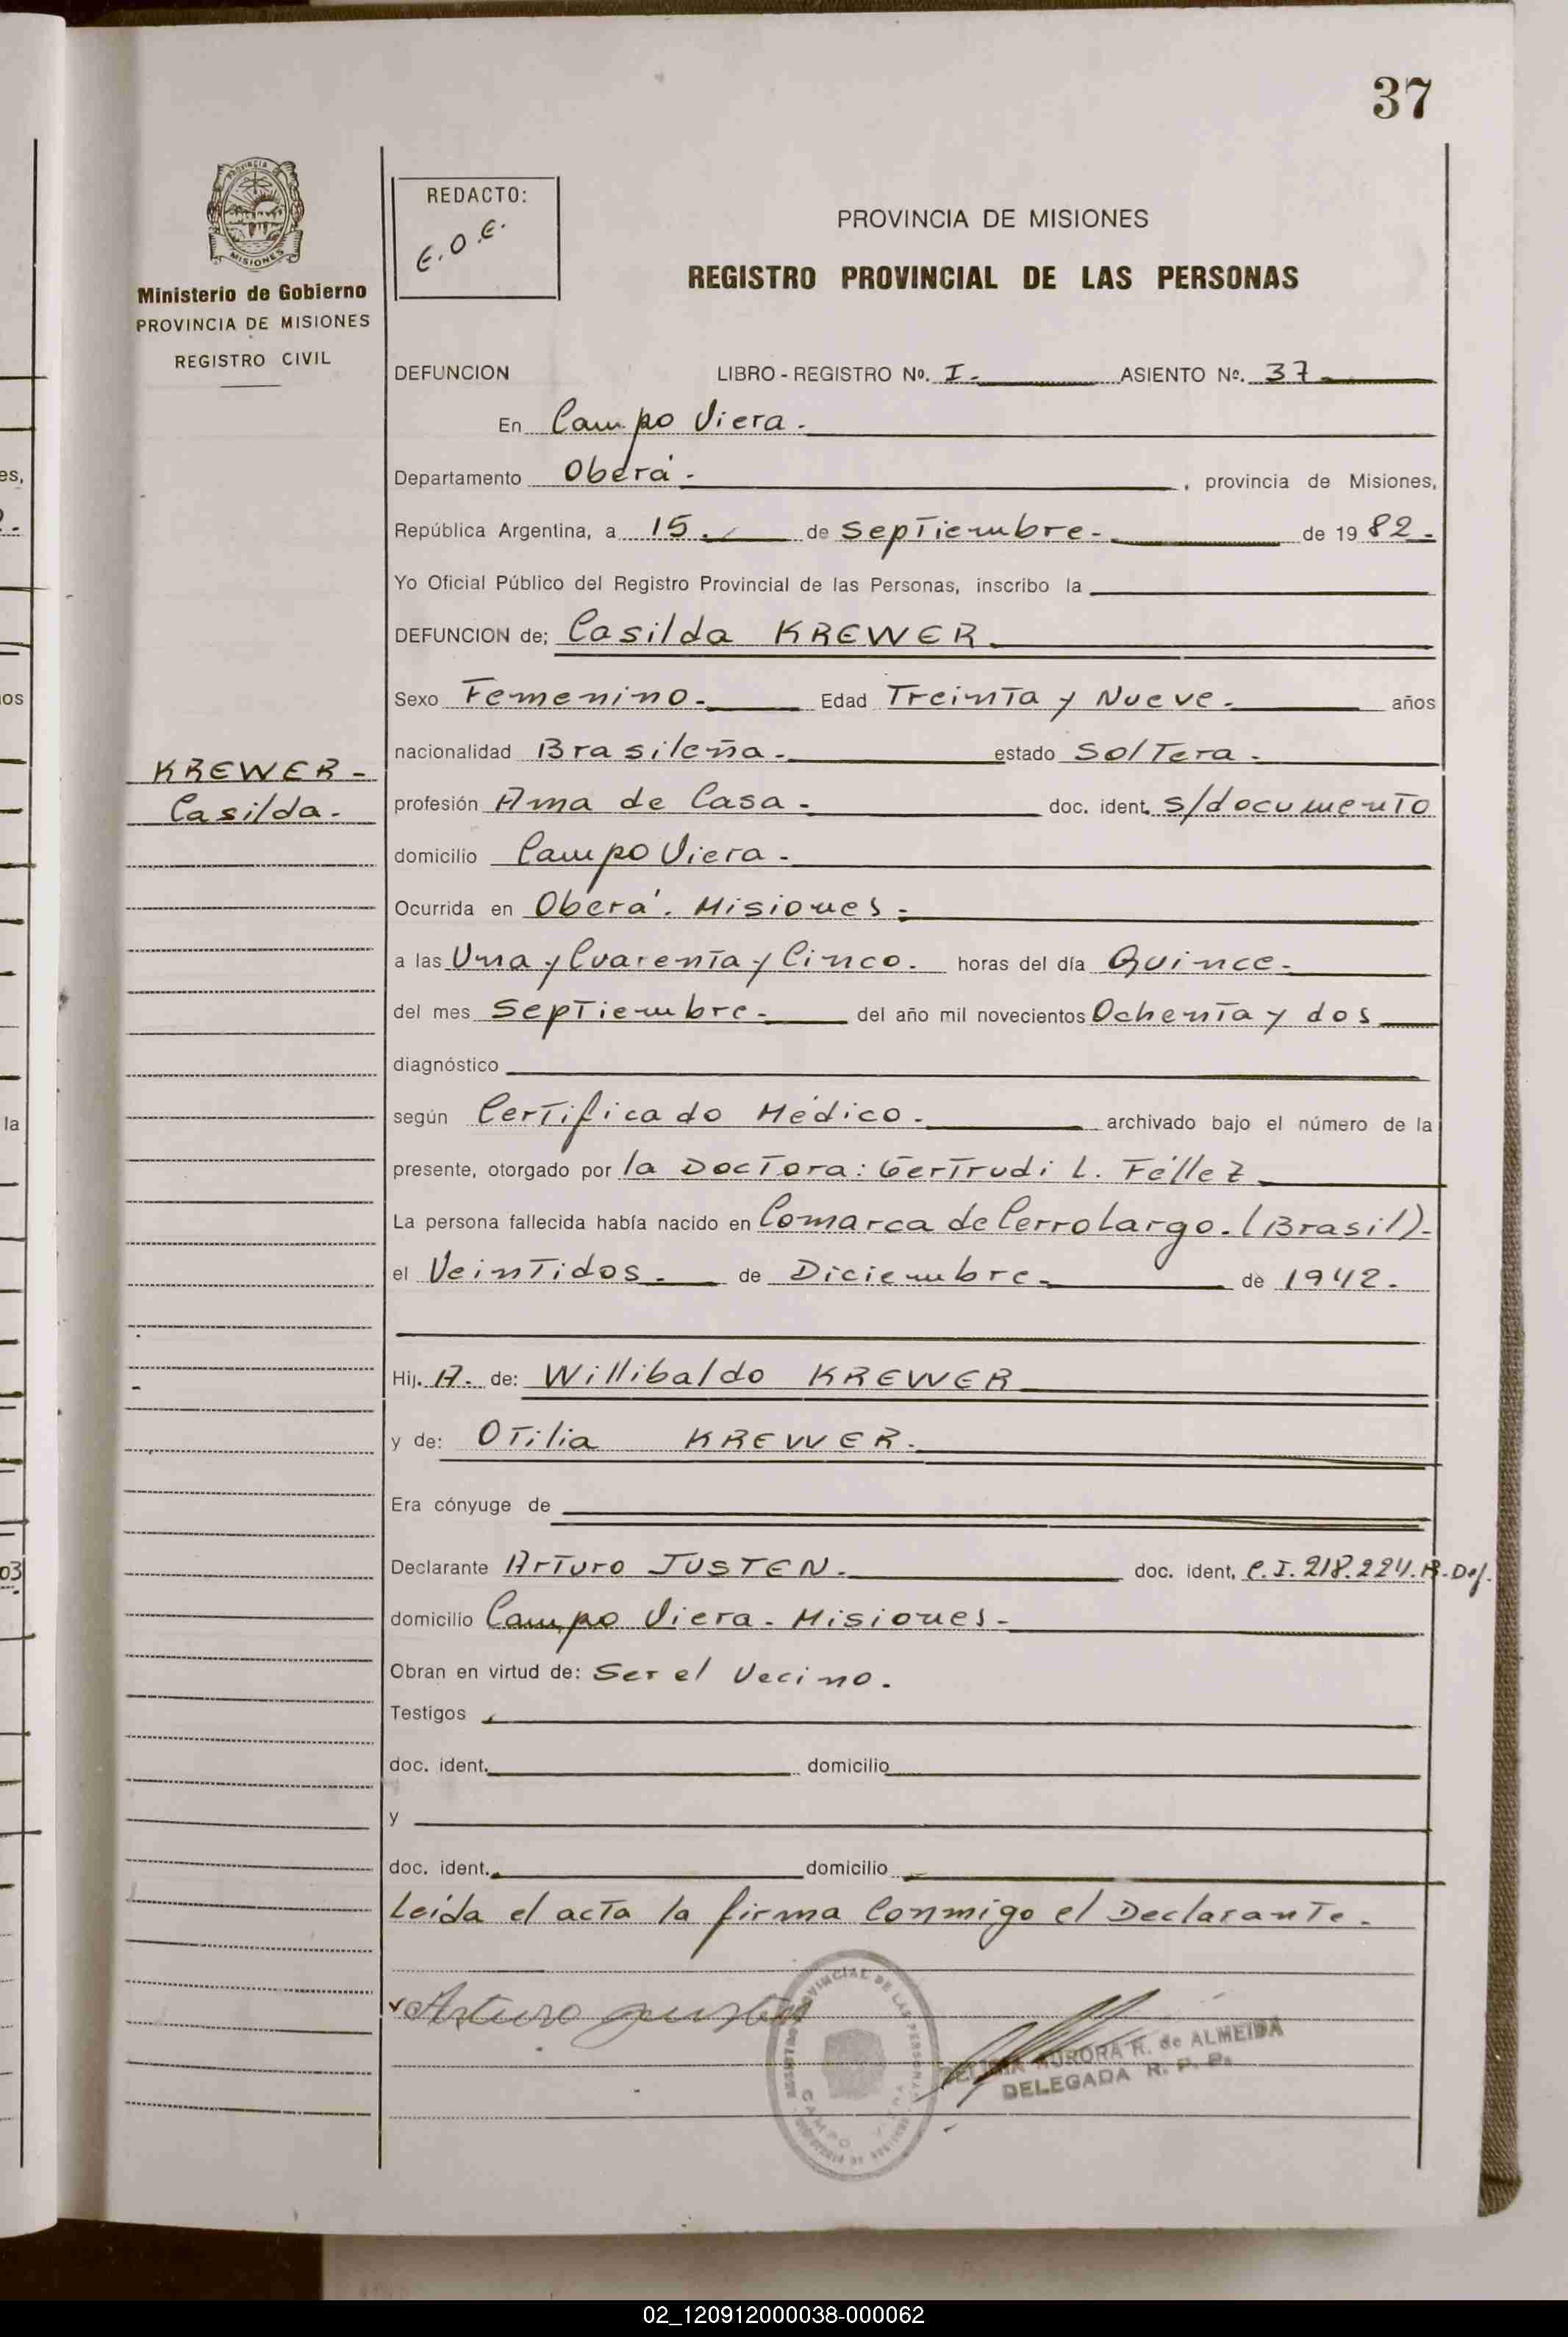 37
PROVINCIA
MISIONES
Ministerio de Gobierno
PROVINCIA DE MISIONES
REGISTRO CIVIL
REDACTO:
E.O.E.
PROVINCIA DE MISIONES
REGISTRO PROVINCIAL DE LAS PERSONAS
DEFUNCION LIBRO - REGISTRO Nº. I - ASIENTO Nº. 37 -
En Campo Viera -
Departamento Oberá - , provincia de Misiones,
República Argentina, a 15 . de Septiembre - de 19 82 -
Yo Oficial Público del Registro Provincial de las Personas, inscribo la
DEFUNCION de; Casilda KREWER
Sexo Femenino - Edad Treinta y Nueve - años
nacionalidad Brasileña - estado Soltera -
KREWER -
Casilda -
profesión Ama de Casa - doc. ident. s/documento
domicilio Campo Viera -
Ocurrida en Oberá. Misiones -
a las Una y Cuarenta y Cinco. horas del día Quince -
del mes Septiembre - del año mil novecientos Ochenta y dos
diagnóstico
según Certificado Médico - archivado bajo el número de la
presente, otorgado por la Doctora: Gertrudi L. Féllez
La persona fallecida había nacido en Comarca de Cerro Largo. (Brasil) -
el Veintidos - de Diciembre - de 1942 -
Hij. A. de: Willibaldo KREWER
y de: Otilia KREWER -
Era cónyuge de
Declarante Arturo JUSTEN - doc. ident, C.I. 218.224.
domicilio Campo Viera - Misiones -
Obran en virtud de: Ser el Vecino .
Testigos
doc. ident. domicilio
y
doc. ident. domicilio
Leída el acta la firma Conmigo el Declarante -
Arturo Justen
AURORA R. de ALMEIDA
DELEGADA R. P. P.
CAMPO VIERA
02_120912000038-000062